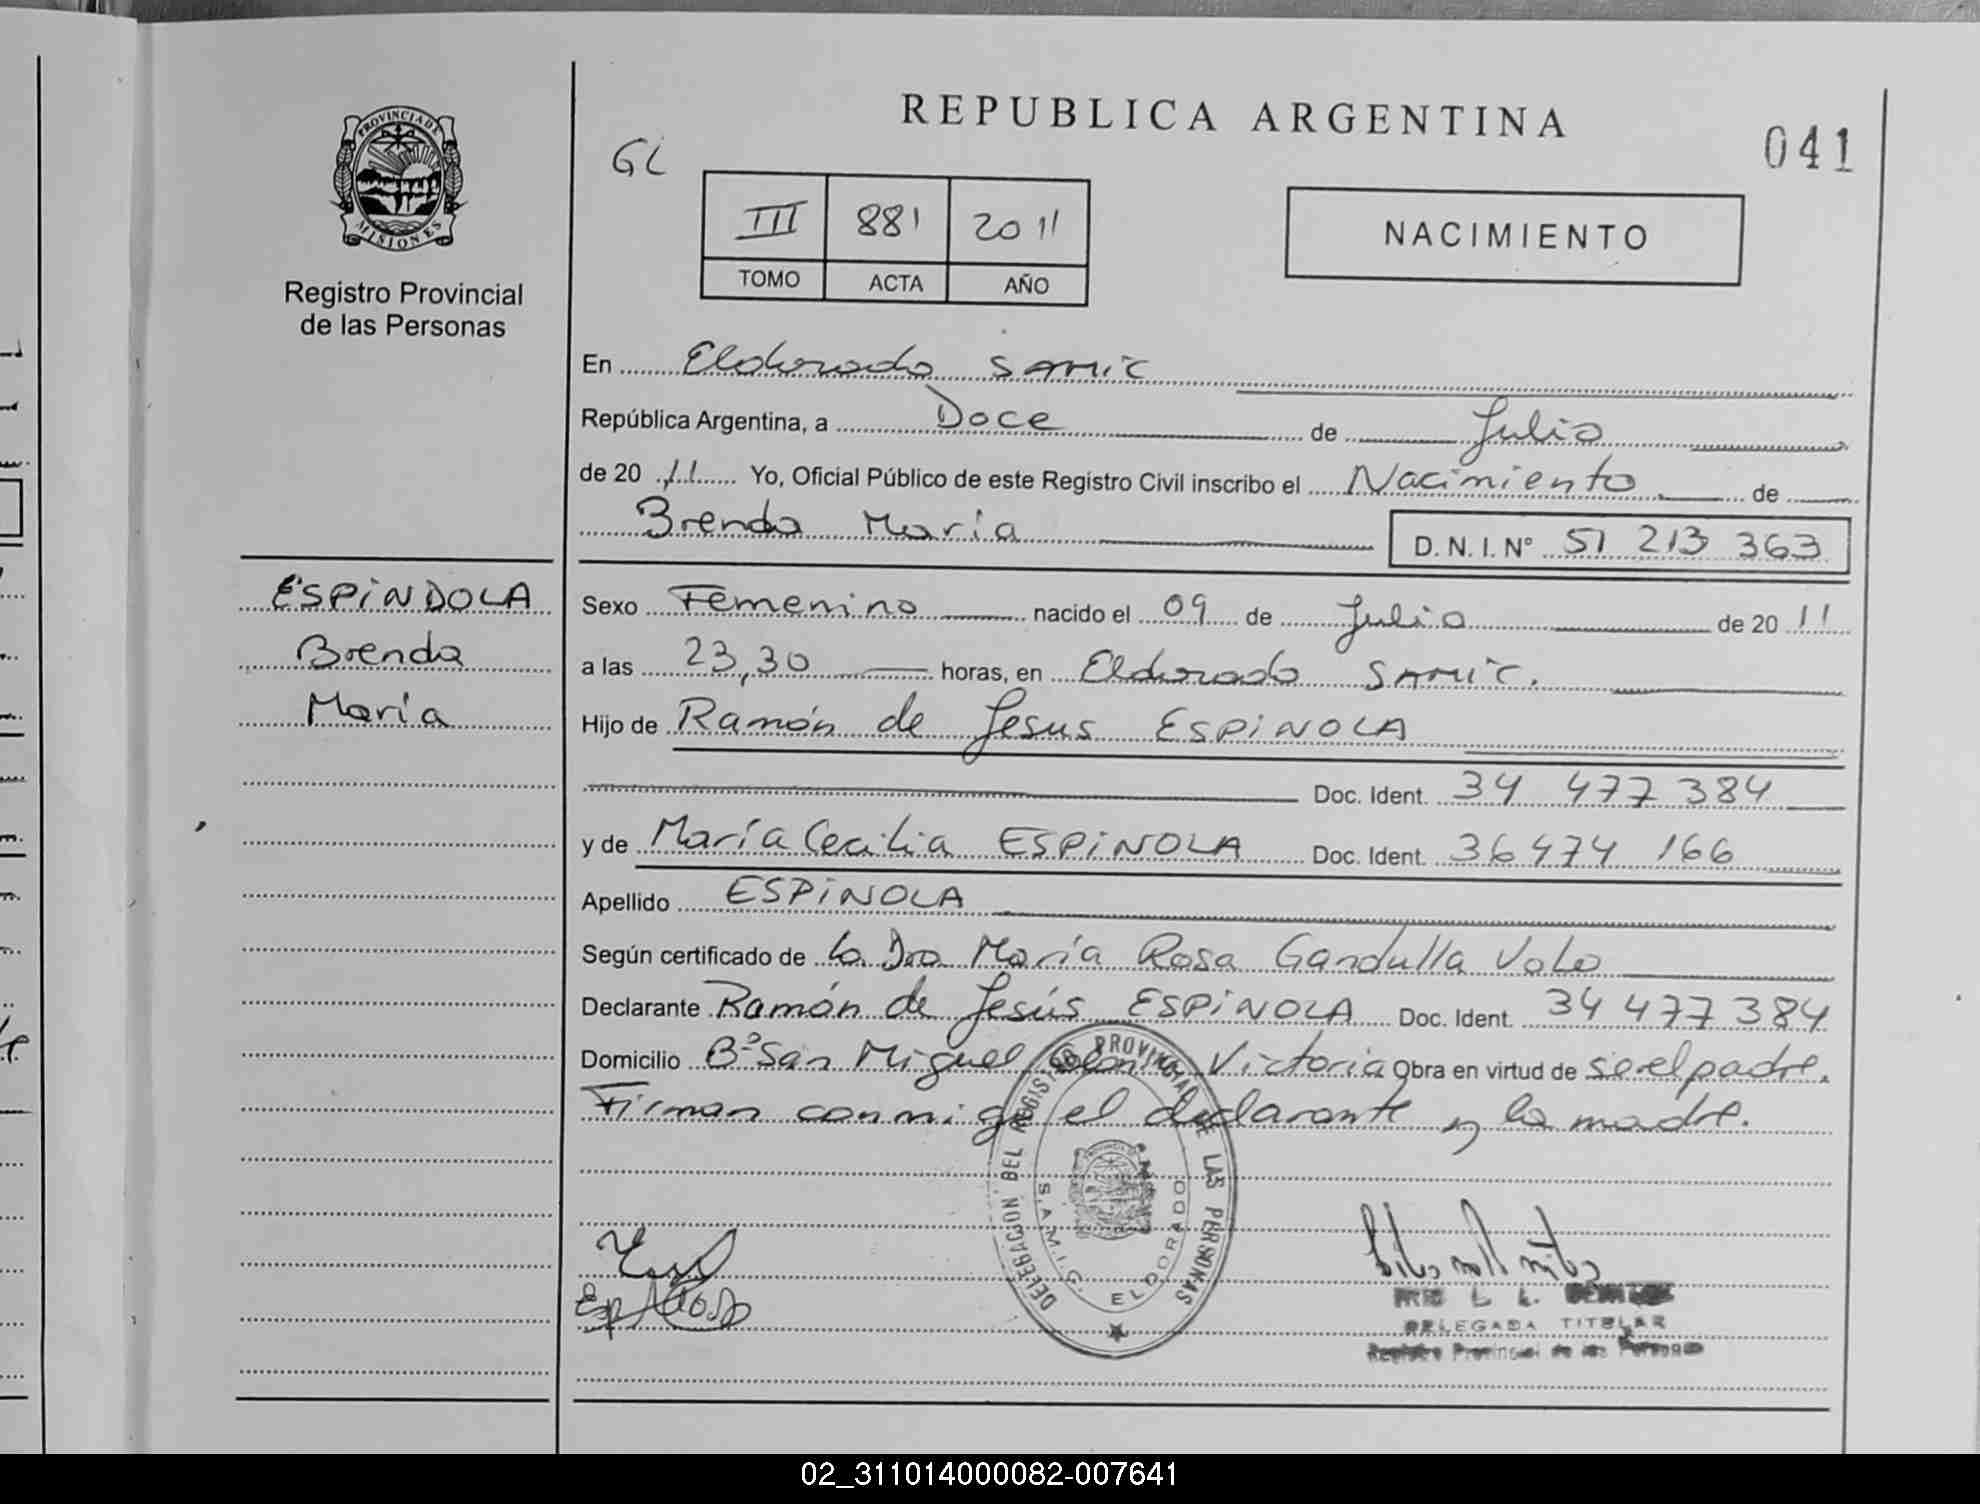 REPUBLICA ARGENTINA
041
PROVINCIA DE MISIONES
Registro Provincial
de las Personas
GL
III 881 2011
TOMO ACTA AÑO
NACIMIENTO
En Eldorado SAMIC
República Argentina, a Doce de Julio
de 20 11 Yo, Oficial Público de este Registro Civil inscribo el Nacimiento de
Brenda María
D.N.I. N° 51 213 363
ESPINDOLA
Brenda
María
Sexo Femenino nacido el 09 de Julio de 20 11
a las 23,30 horas, en Eldorado SAMIC.
Hijo de Ramón de Jesus ESPINOLA
Doc. Ident. 34 477 384
y de María Cecilia ESPINOLA Doc. Ident. 36474 166
Apellido ESPINOLA
Según certificado de la Dra María Rosa Gandulla Valo
Declarante Ramón de Jesús ESPINOLA Doc. Ident. 34 477 384
Domicilio B° San Miguel Victoria Obra en virtud de ser el padre.
Firman conmigo el declarante y la madre.
DELEGACION DEL REGISTRO PROVINCIAL DE LAS PERSONAS
S.A.M.I.C. ELDORADO
DELEGADA TITULAR
Registro Provincial de las Personas
02_311014000082-007641